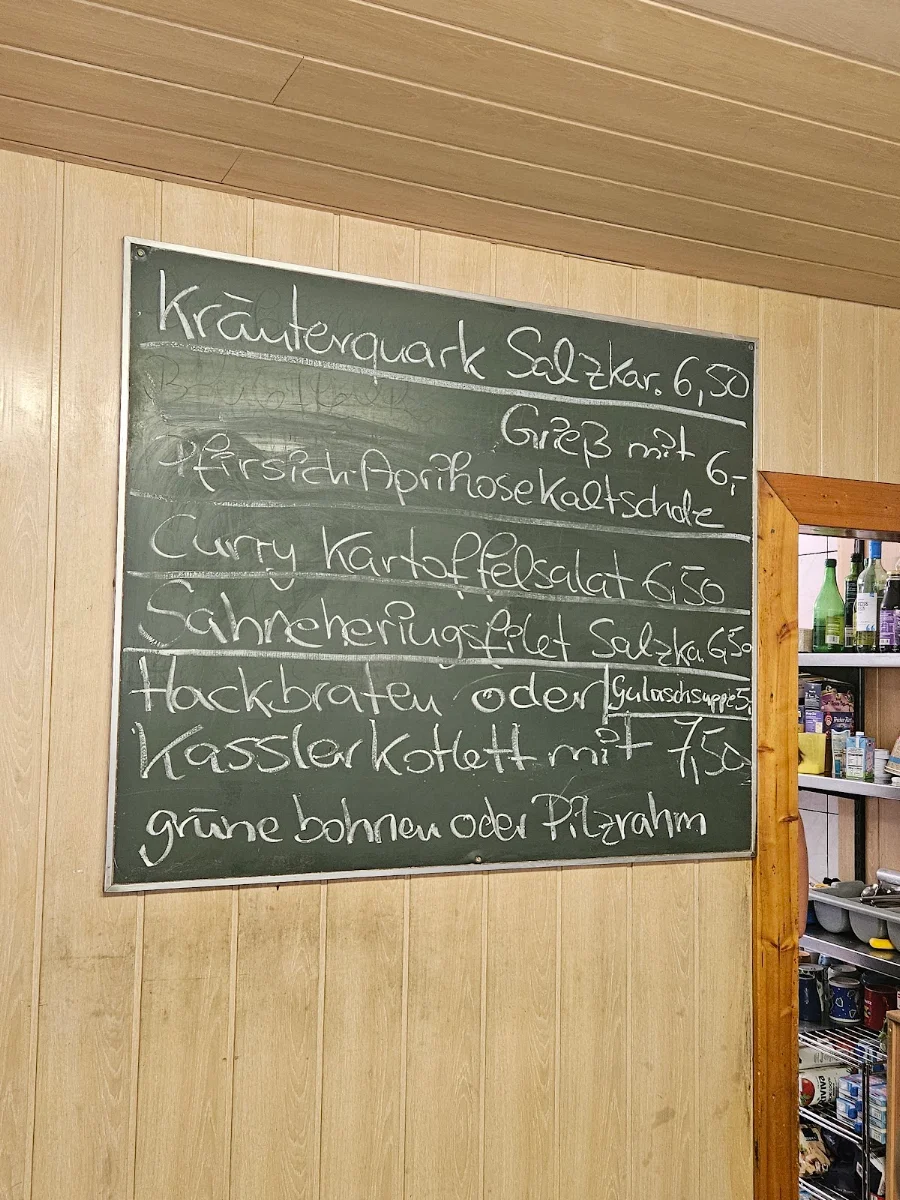 Kräuterquark Salzkar. 6,50
Grieß mit
Pfirsich-Aprikose Kaltschale 6,-
Curry Kartoffelsalat 6,50
Sahneheringsfilet Salzka. 6,50
Hackbraten oder
Gulaschsuppe 5,
Kassler Kotlett mit 7,50
grüne bohnen oder Pilzrahm